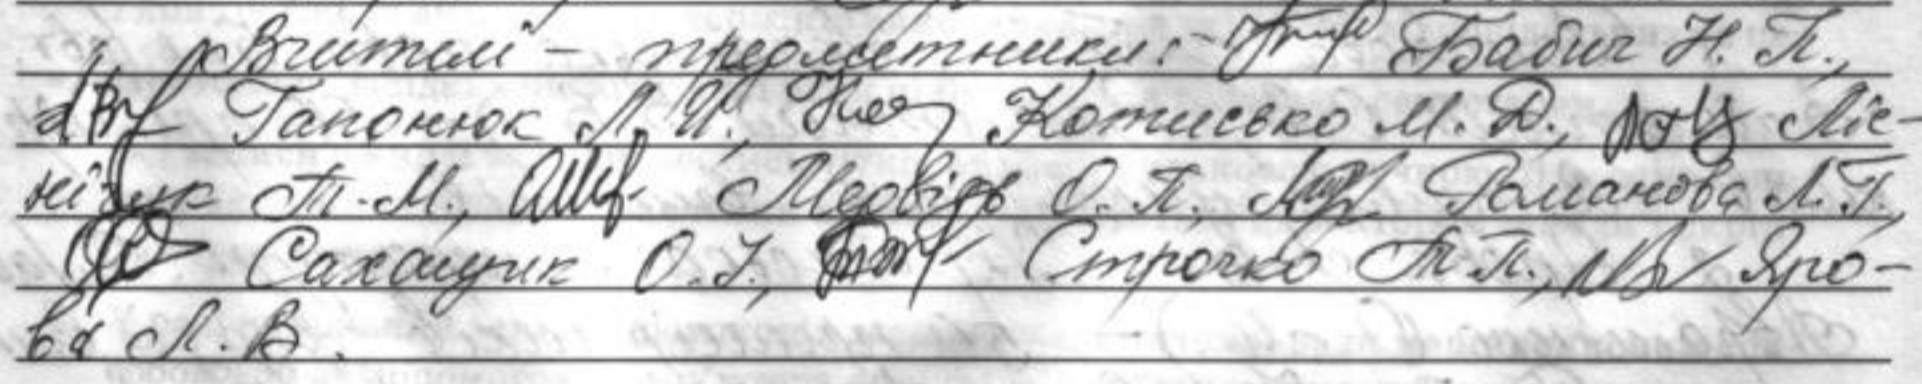 Вчителі - предметники: - Бабич Н. П.,
Гапонюк Л. И., Котисько М. Д., Ліс-
нічук Т. М., Медвідь О. П., Романова Л. Г.,
Сахащик О. І., Строчко Т. П., Яро-
ва Л. В.